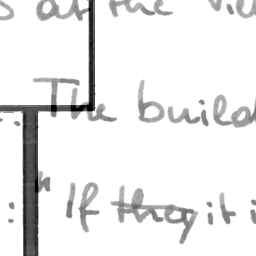 at the
The build
" If they it i